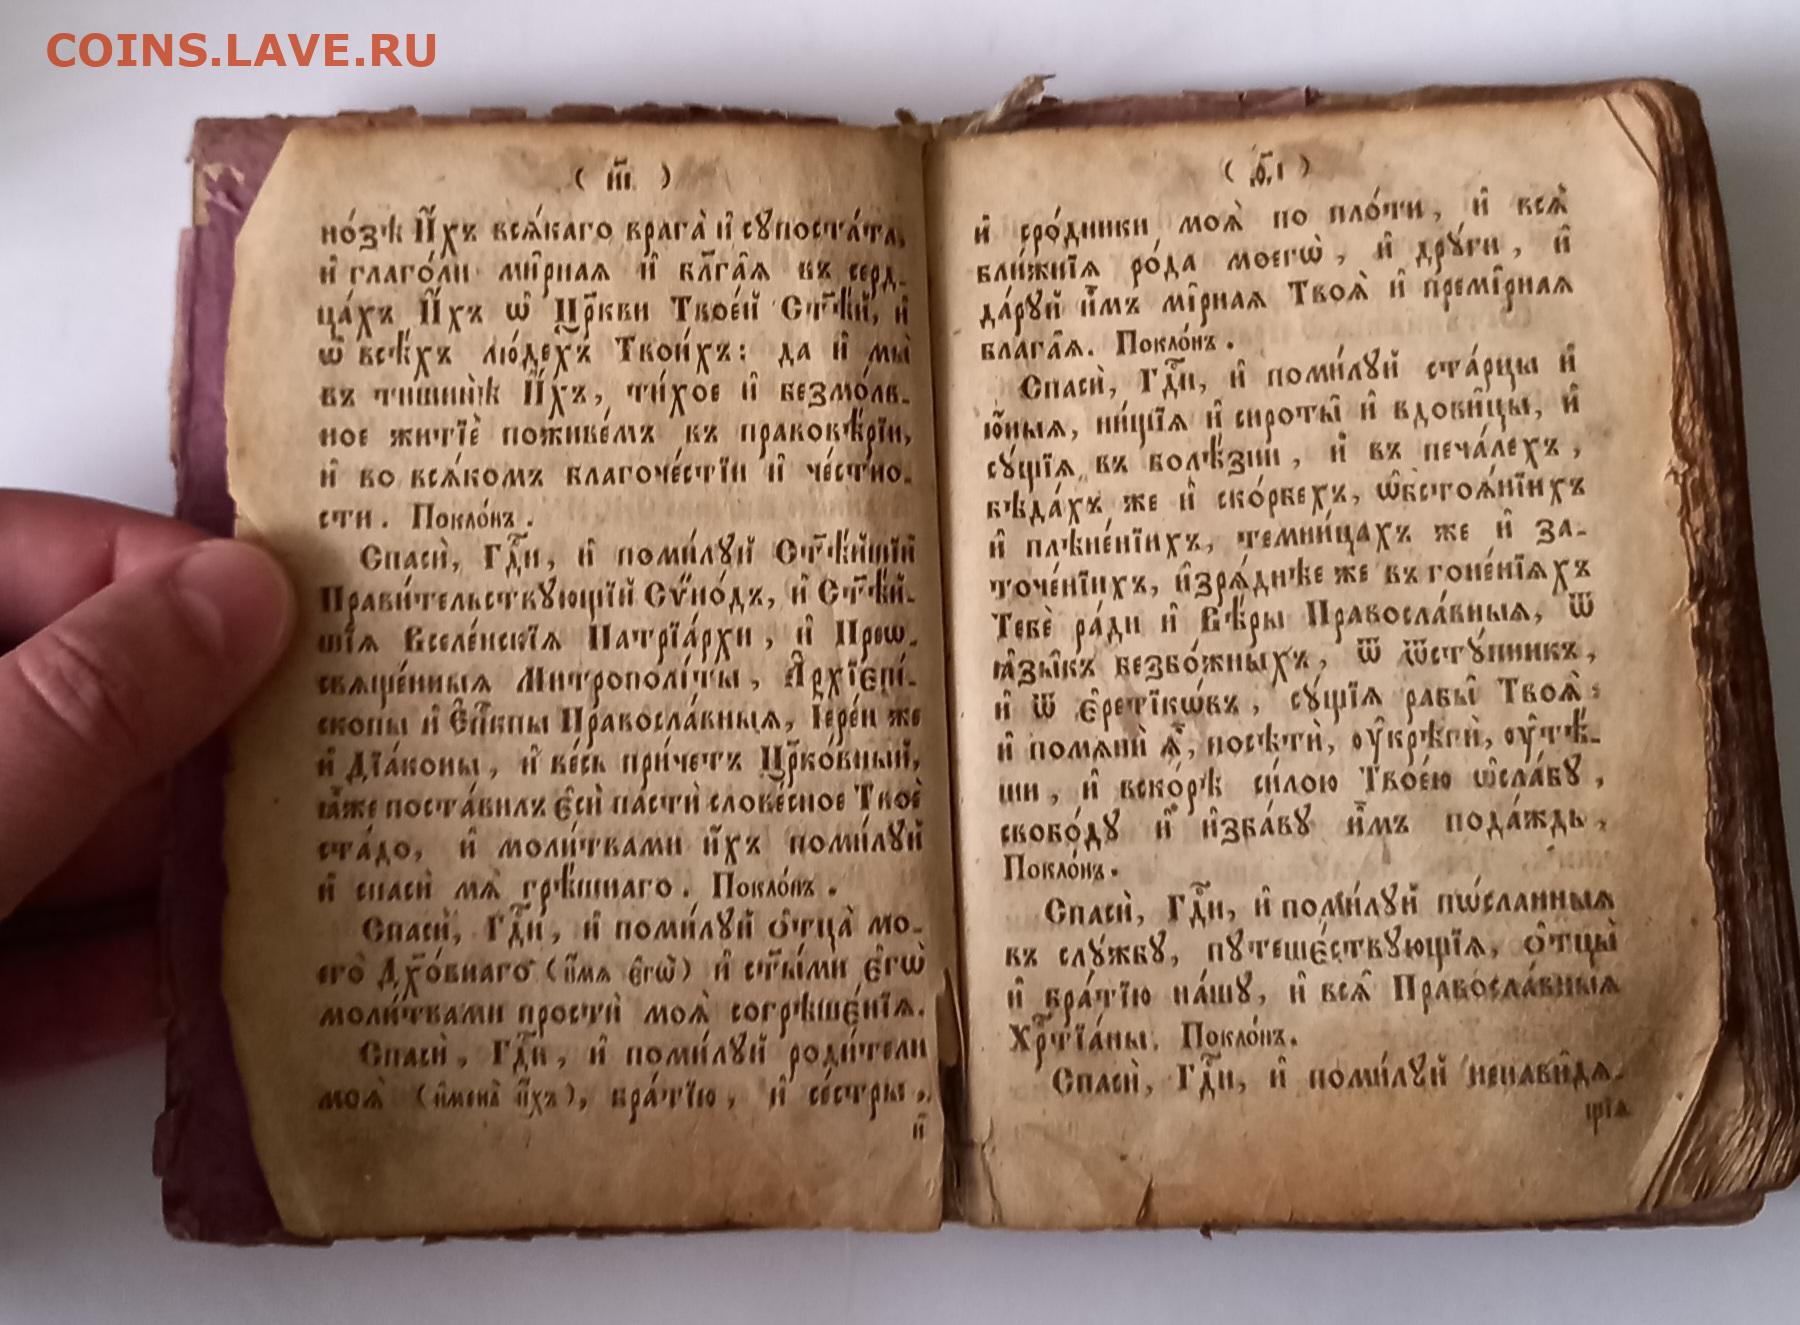 COINS.LAVE.RU
( и҃і )
но́зѣ И҆́хъ вся́каго врага̀ и҆ супоста́та,
и҆ глаго́ли ми̑рная и҆ бл҃га̑я въ серд-
ца́хъ И҆́хъ ѡ҆ Цр҃кви Твое́й Ст҃ѣ́й, и҆
ѡ҆ всѣ́хъ лю́дехъ Твои́хъ: да и҆ мы̀
въ тишинѣ̀ И҆́хъ, ти́хое и҆ безмо́лв-
ное житїѐ поживе́мъ въ правовѣ́рїи,
и҆ во вся́комъ благоче́стїи и҆ че́стно-
сти. Покло́нъ.
Спасѝ, Гдⷭ҇и, и҆ поми́луй Ст҃ѣ́йшїй
Прави́тельствующїй Сѷно́дъ, и҆ Ст҃ѣ́й-
шїя Вселе́нскїя Патрїа́рхи, и҆ Преѡ-
свяще́нныя Митрополі́ты, А҆рхїепі́-
скопы и҆ Е҆пⷭ҇кпы Правосла́вныя, Іере́и же
и҆ Дїа́коны, и҆ ве́сь при́четъ Цр҃ко́вный,
ꙗ҆̀же поста́вилъ є҆сѝ пастѝ слове́сное Твоѐ
ста́до, и҆ моли́твами и҆́хъ поми́луй
и҆ спасѝ мѧ̀ грѣ́шнаго. Покло́нъ.
Спасѝ, Гдⷭ҇и, и҆ поми́луй ѻ҆тца̀ мо-
его̀ Дх҃о́внаго (и҆́мя є҆гѡ̀) и҆ ст҃ы́ми є҆гѡ̀
моли́твами простѝ моя̑ согрѣше́нїя.
Спасѝ, Гдⷭ҇и, и҆ поми́луй роди́тели
моя̑ (и҆мена̀ и҆́хъ), бра́тїю, и҆ се́стры,
и҆
( ѳ҃і )
и҆ сро́дники моя̑ по пло́ти, и҆ вся̑
бли́жнїя ро́да моегѡ̀, и҆ дру́ги, и҆
да́руй и҆̀мъ ми̑рная Твоя̑ и҆ преми̑рная
блага̑я. Покло́нъ.
Спасѝ, Гдⷭ҇и, и҆ поми́луй ста́рцы и҆
ю҆́ныя, ни́щїя и҆ сироты̑ и҆ вдови̑цы, и҆
су́щїя въ болѣ́зни, и҆ въ печа́лехъ,
бѣда́хъ же и҆ ско́рбехъ, ѡ҆бстоя́нїихъ
и҆ плѣне́нїихъ, темни́цахъ же и҆ за-
точе́нїихъ, и҆зря́днѣе же въ гоне́нїяхъ
Тебѐ ра́ди и҆ Вѣ́ры Правосла́вныя, ѿ
ꙗ҆зы̑къ безбо́жныхъ, ѿ ѿсту̑пникъ,
и҆ ѿ є҆ретїкѡ́въ, су́щїя рабы̑ Твоя̑:
и҆ помянѝ ѧ҆̀, посѣтѝ, оу҆крѣпѝ, оу҆тѣ́-
ши, и҆ вско́рѣ си́лою Твое́ю ѡ҆сла́бу,
свобо́ду и҆ и҆зба́ву и҆̀мъ пода́ждь.
Покло́нъ.
Спасѝ, Гдⷭ҇и, и҆ поми́луй пѡ́сланныя
въ слу́жбу, путеше́ствующїя, ѻ҆тцы̀
и҆ бра́тїю на́шу, и҆ вся̑ Правосла́вныя
Хрⷭ҇тїа́ны. Покло́нъ.
Спасѝ, Гдⷭ҇и, и҆ поми́луй ненави́дя-
щїя